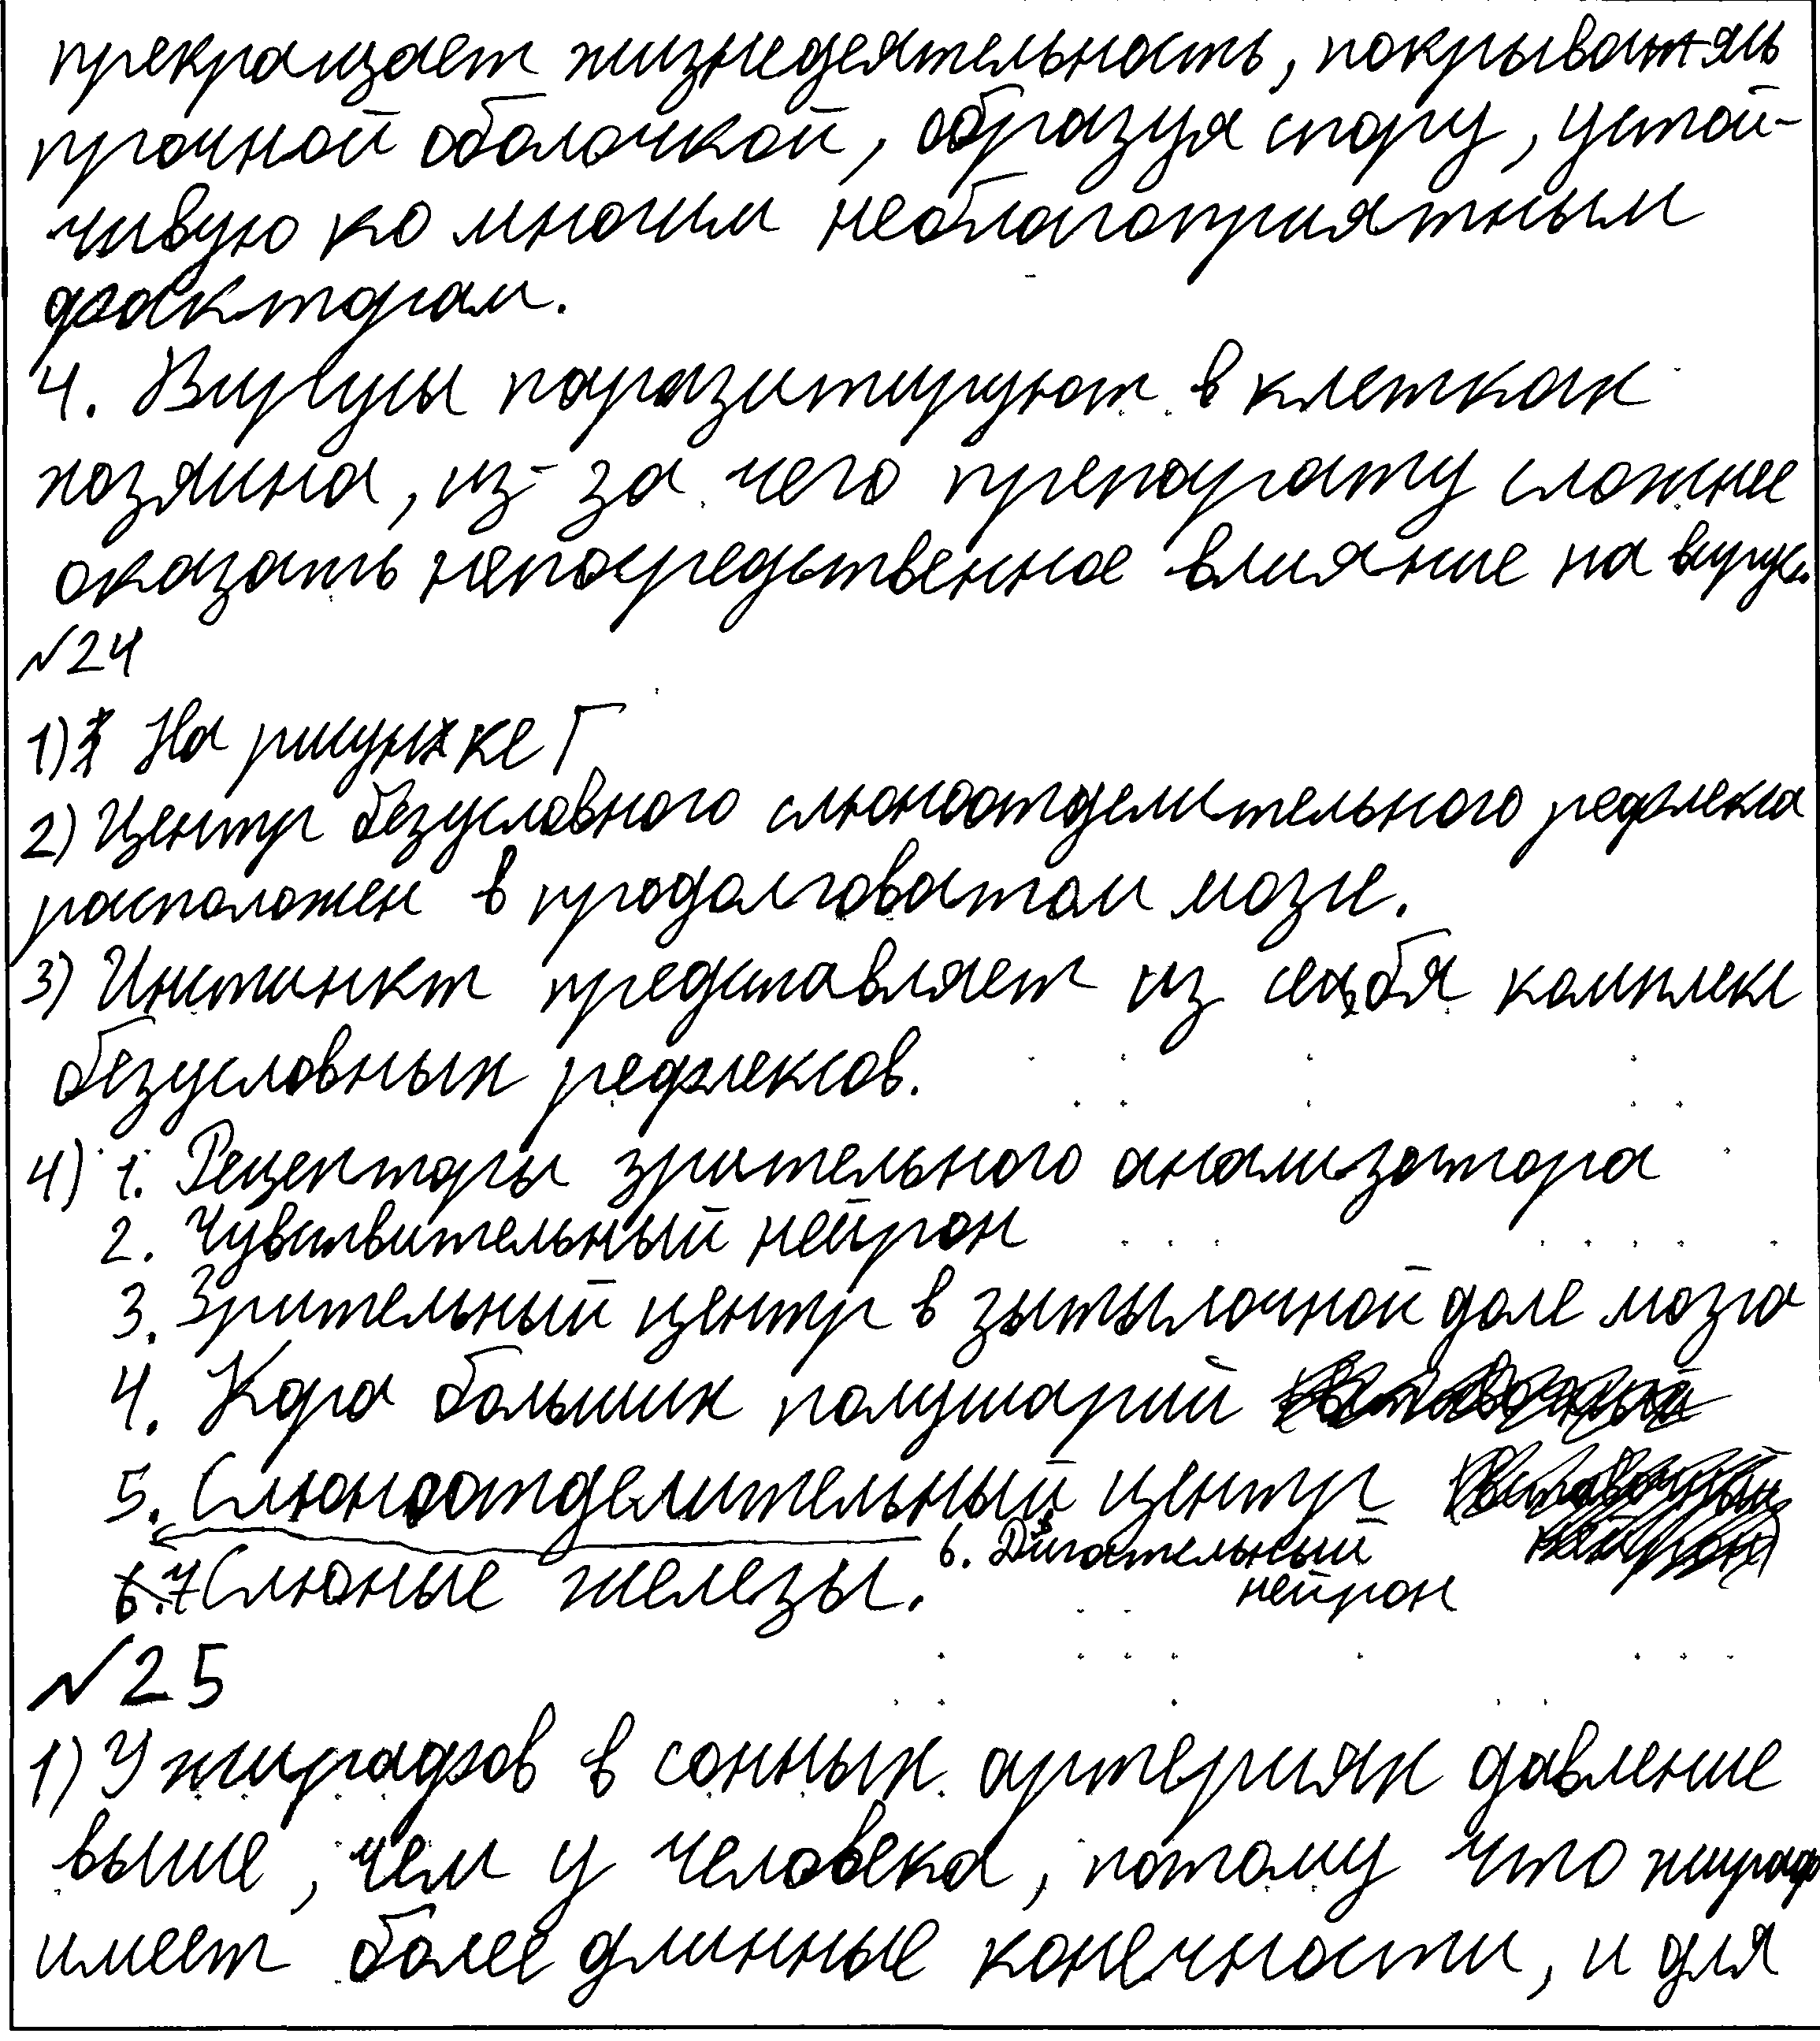 прекращает жизнедеятельность, покрываясь
прочной оболочкой, образуя спору, устой-
чивую ко многим неблагоприятным
факторам.
4. Вирусы паразитируют в клетках
хозяина, из-за чего препарату сложнее
оказать непосредственное влияние на вирусы.
№24
1) На рисунке Г
2) Центр безусловного слюноотделительного рефлекса
расположен в продолговатом мозге.
3) Инстинкт представляет из себя комплекс
безусловных рефлексов.
4) 1. Рецепторы зрительного анализатора
2. Чувствительный нейрон
3. Зрительный центр в зытылочной доле мозга
4. Кора больших полушарий
5. Слюноотделительный центр
6. Двигательный
нейрон
7 Слюные железы.
№25
1) У жирафов в сонных артериях давление
выше, чем у человека, потому что жираф
имеет более длинные конечности, и для